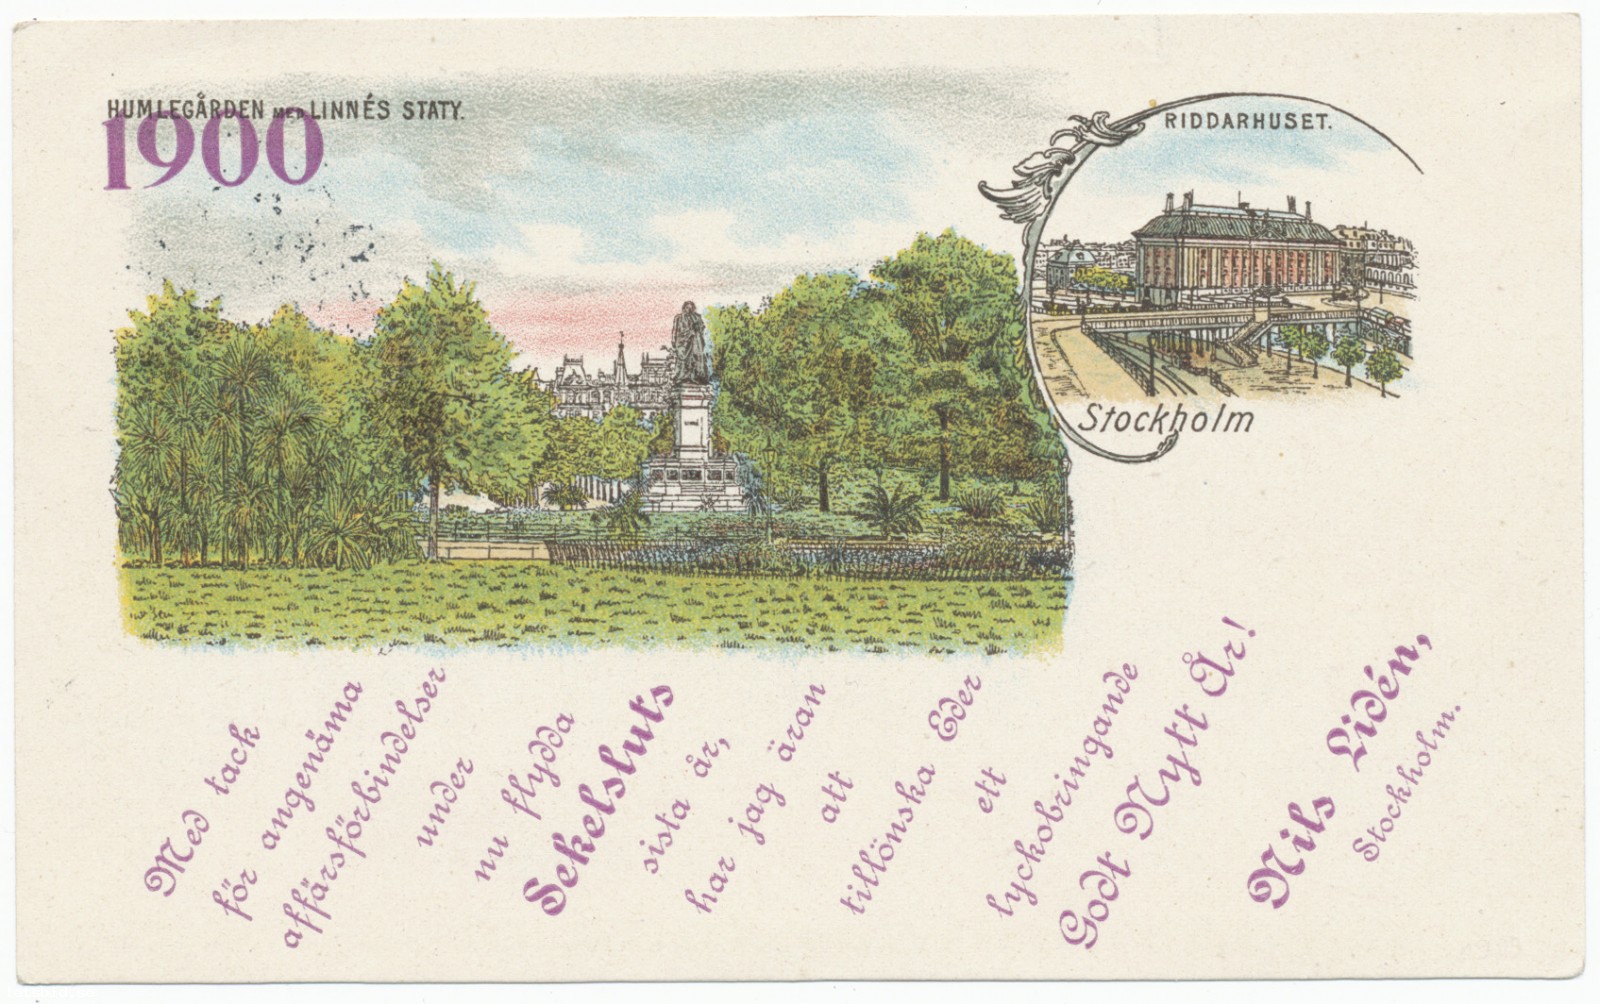 HUMLEGÅRDEN MED LINNÉS STATY.
1900
RIDDARHUSET.
Stockholm
Med tack
för angenäma
affärsförbindelser
under
nu flydda
Sekelsluts
sista år,
har jag äran
att
tillönska Eder
ett
lyckobringande
Godt Nytt År!
Nils Lidén,
Stockholm.